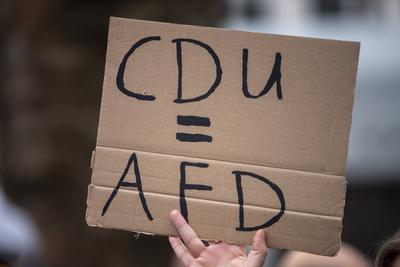 CDU
=
AFD